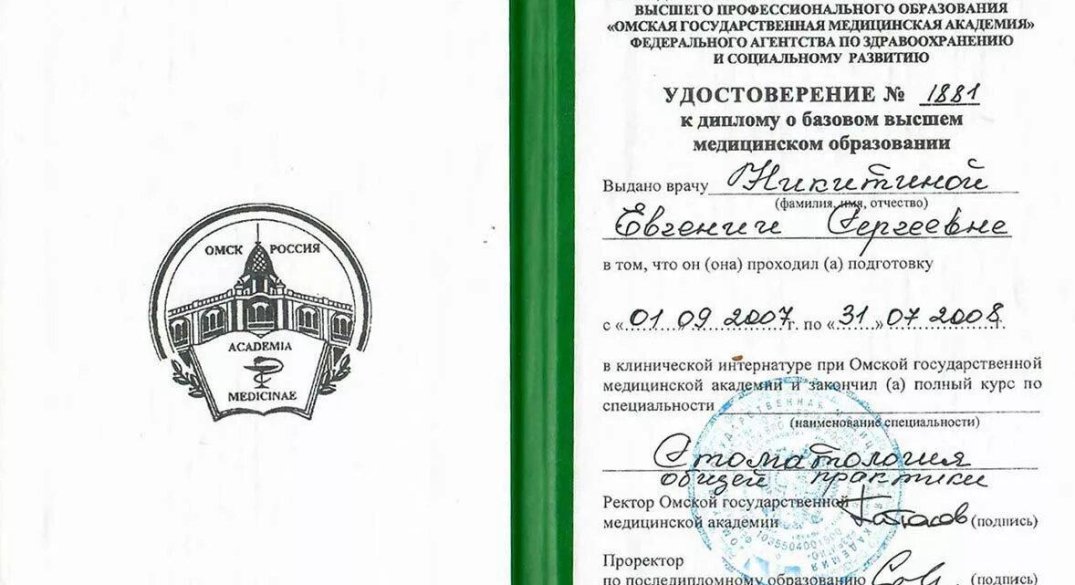 ОМСК РОССИЯ
ACADEMIA
MEDICINAE
ВЫСШЕГО ПРОФЕССИОНАЛЬНОГО ОБРАЗОВАНИЯ
«ОМСКАЯ ГОСУДАРСТВЕННАЯ МЕДИЦИНСКАЯ АКАДЕМИЯ»
ФЕДЕРАЛЬНОГО АГЕНТСТВА ПО ЗДРАВООХРАНЕНИЮ
И СОЦИАЛЬНОМУ РАЗВИТИЮ
УДОСТОВЕРЕНИЕ № 1881
к диплому о базовом высшем
медицинском образовании
Выдано врачу Никитиной
(фамилия, имя, отчество)
Евгении Сергеевне
в том, что он (она) проходил (а) подготовку
с «01 09 2007г. по «31» 07 2008г.
в клинической интернатуре при Омской государственной
медицинской академии и закончил (а) полный курс по
специальности
(наименование специальности)
Стоматология
общей практики
Ректор Омской государственной
медицинской академии (подпись)
Проректор
по последипломному образованию (подпись)